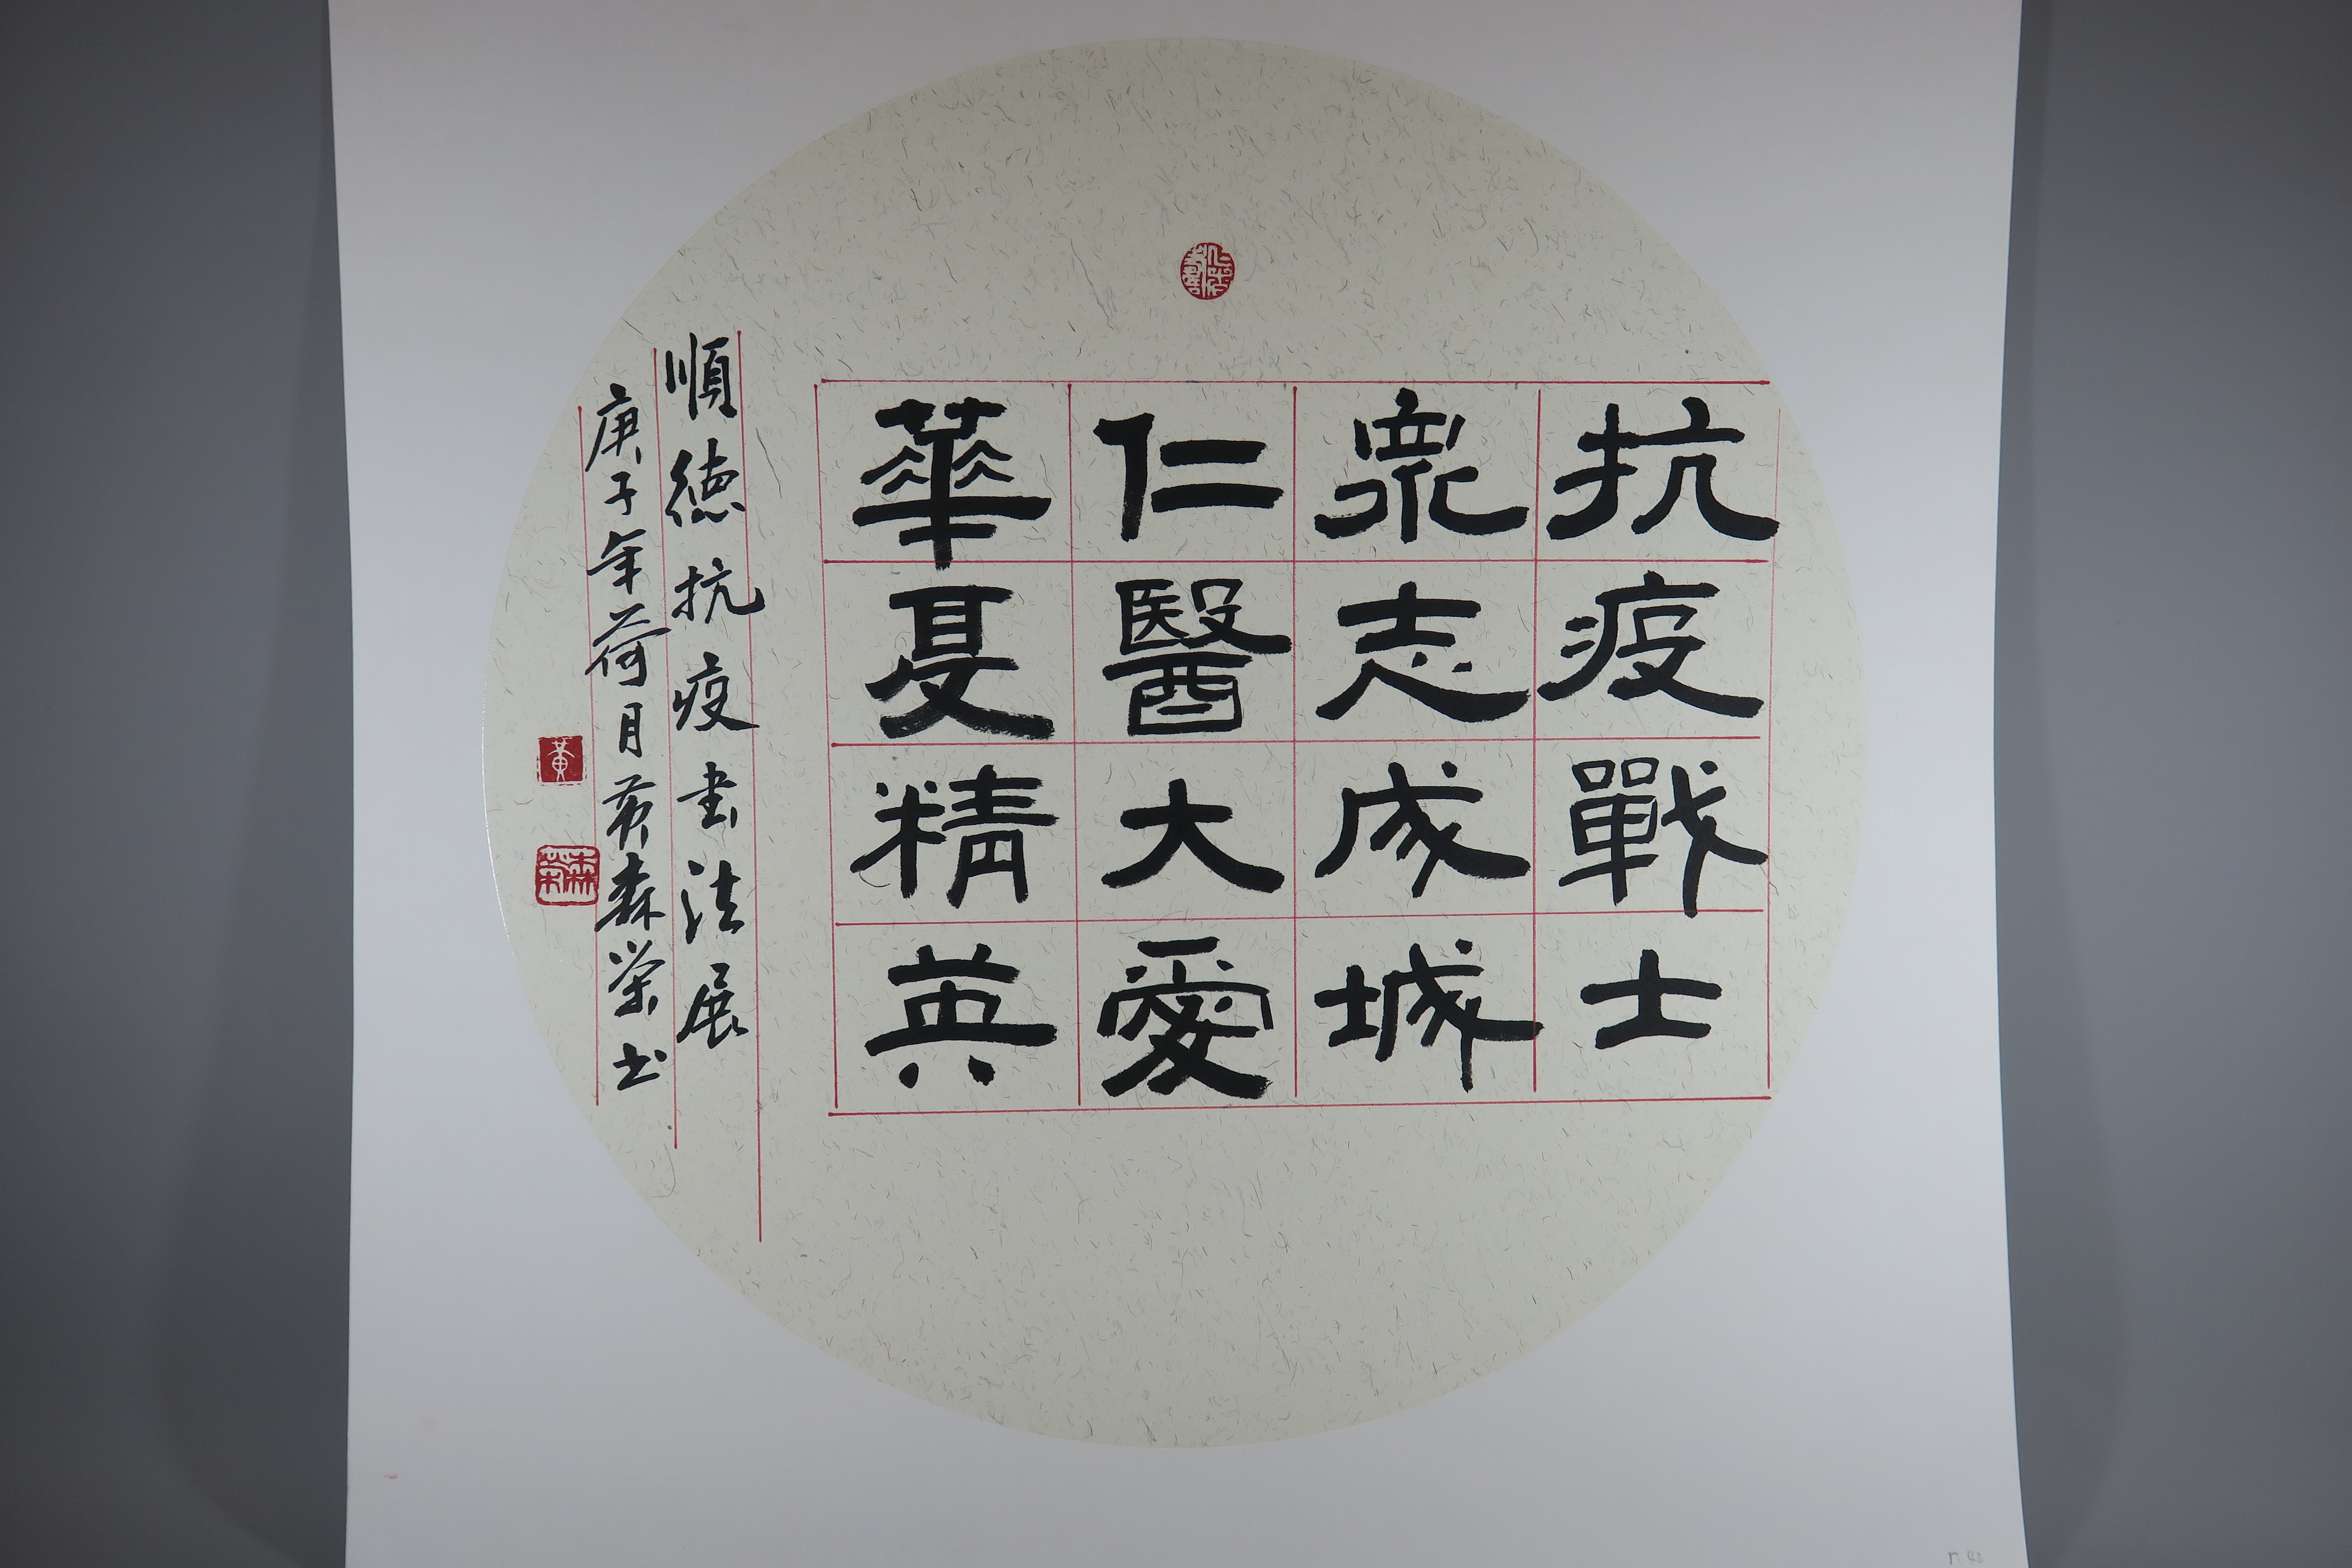 抗疫戰士
衆志成城
仁醫大愛
華夏精英
順德抗疫书法展
庚子年荷月黄森荣书
黃
森荣